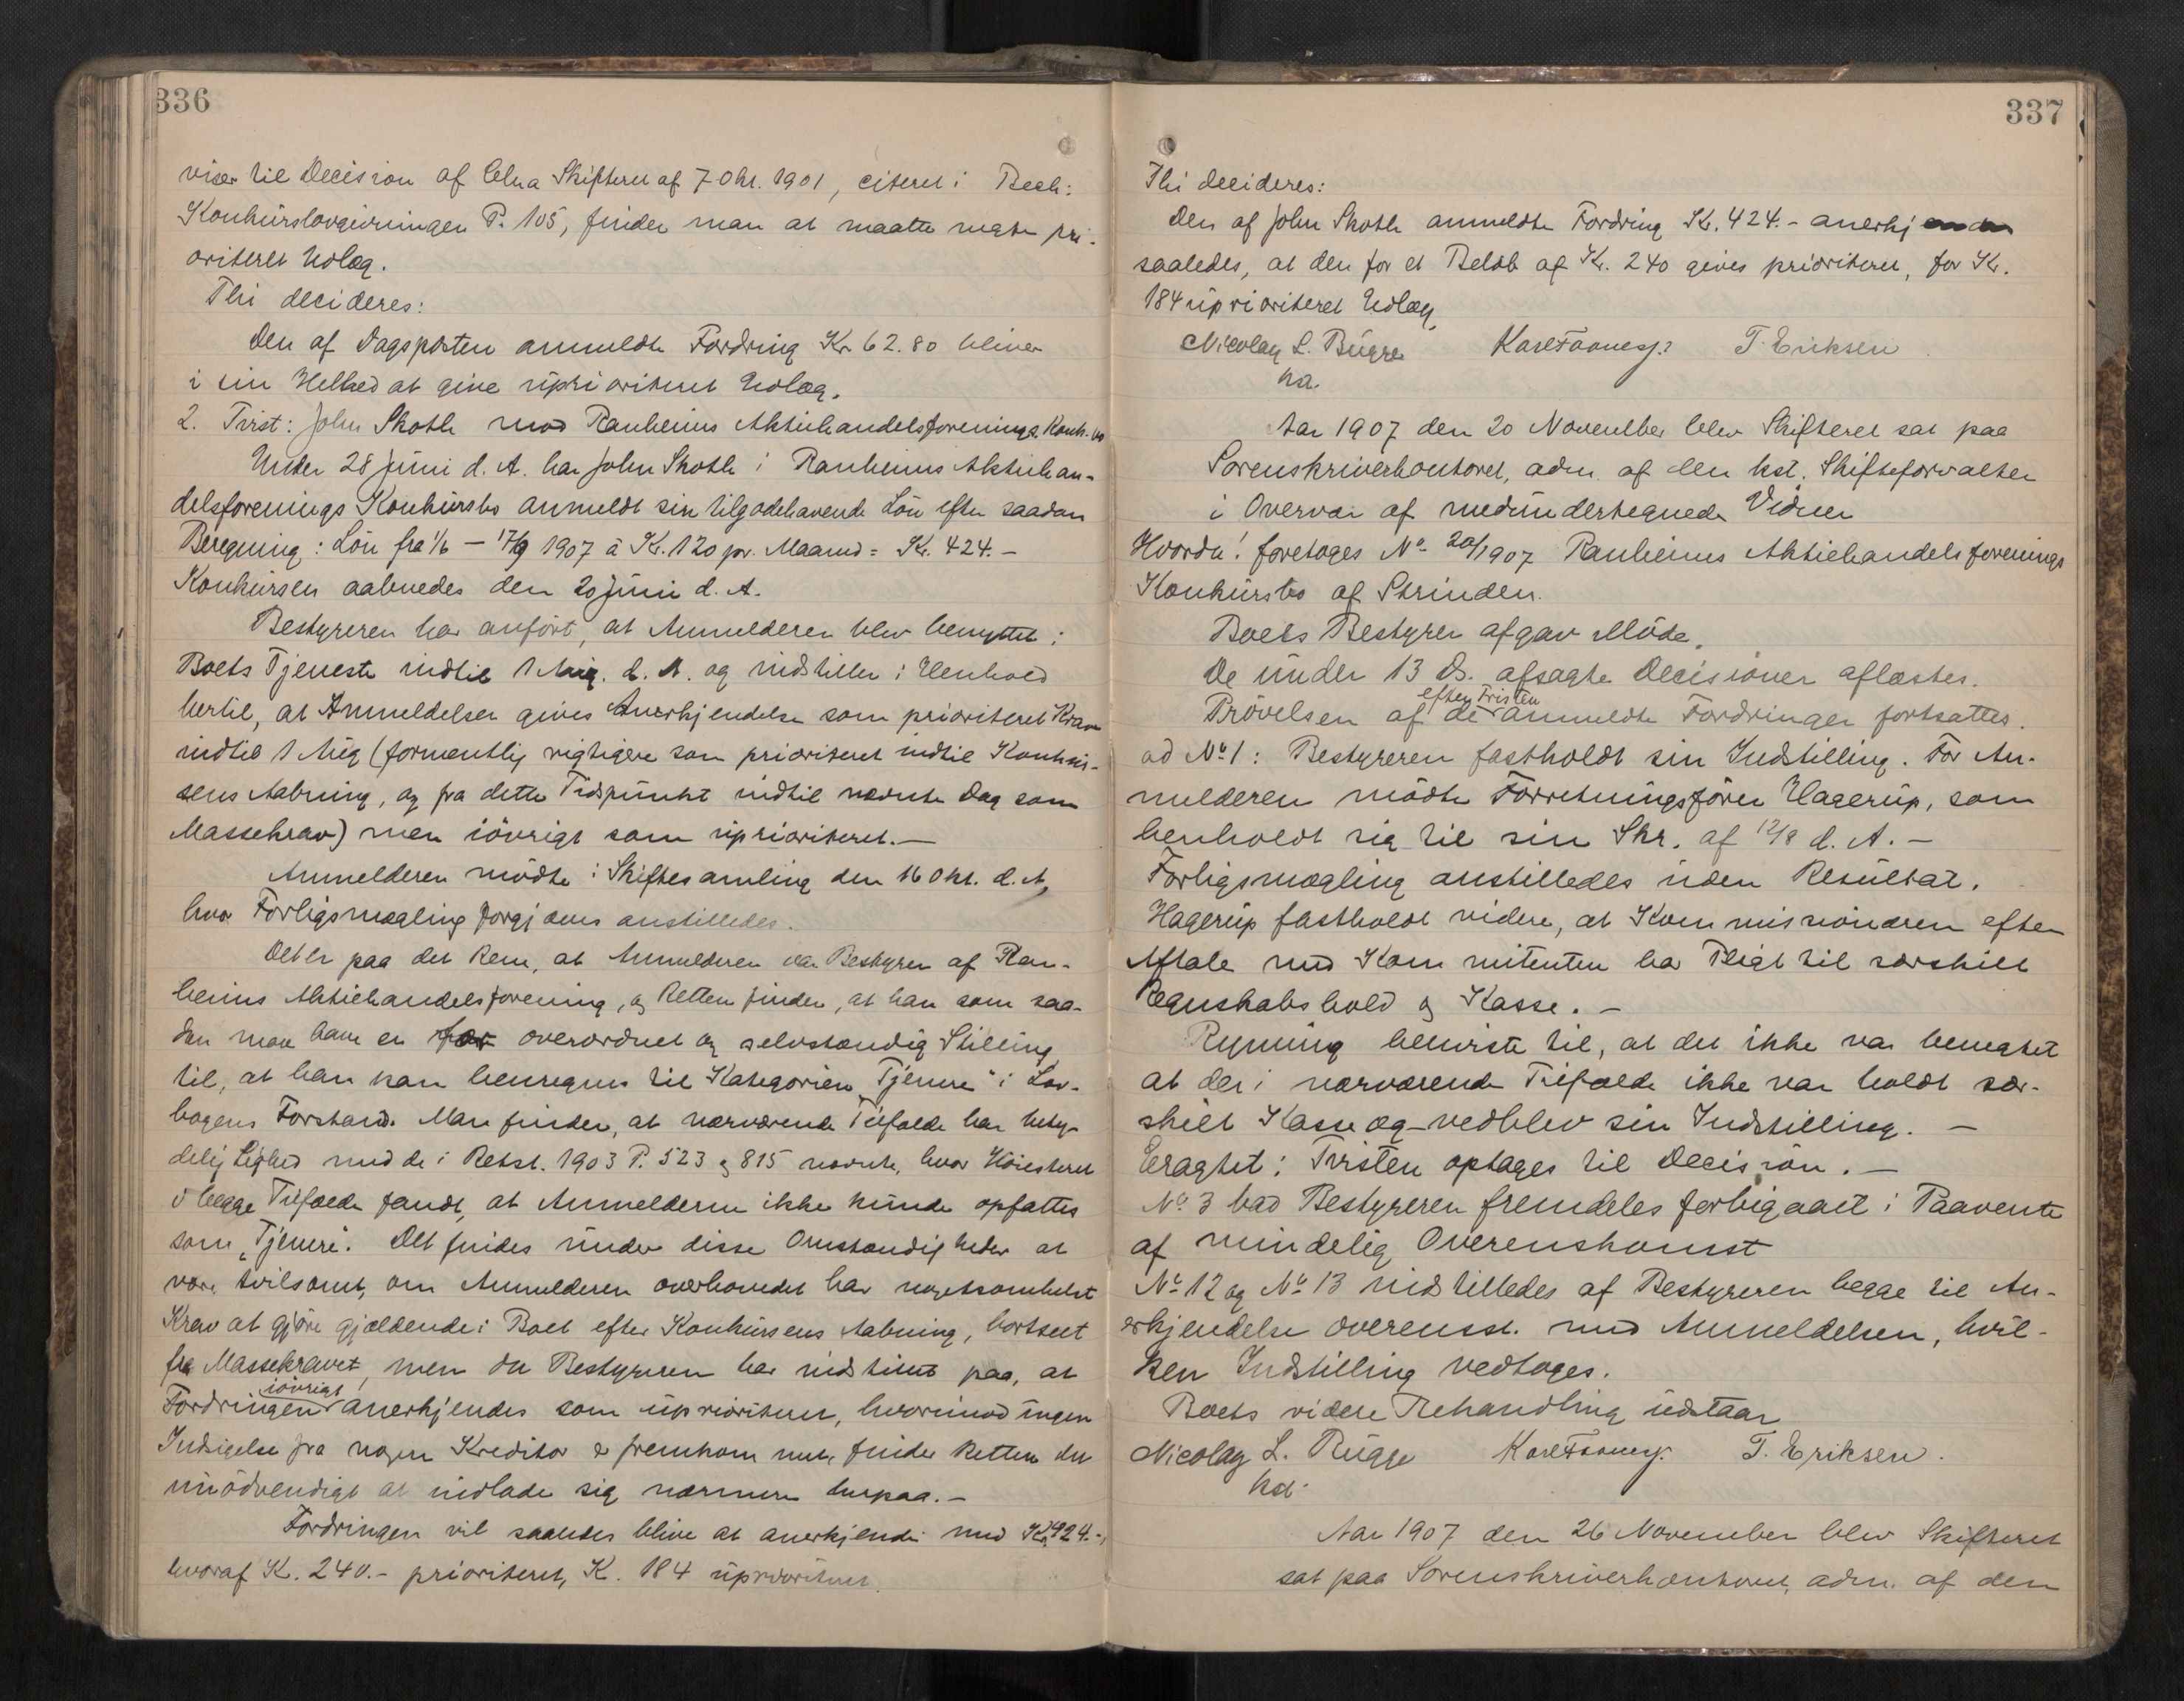 336
viser til Decision af Chra Skifteret af 7 Okt. 1901, citeret i Bech:
Konkurslovgivningen P. 105, finder man at maatte negte pri-
oriteret Udlæg.
Thi decideres:
Den af Dagsposten anmeldte Fordring Kr 62.80 bliver
i sin Helhed at give uprioriteret Udlæg.
2. Tvist: John Skoth mod Ranheims Aktiehandelsforenings Konk.bo
Under 28 Juni d. A. har John Skoth i Ranheims Aktiehan-
delsforenings Konkursbo anmeldt sin tilgodehavende Lön efter saadan
Beregning: Lön fra 1/6 – 17/9 1907 à Kr. 120 pr. Maaned = Kr. 424.-
Konkursen aabnedes den 20 Juni d. A.
Bestyreren har anfört, at Anmelderen blev benyttet i
Boets Tjeneste indtil 1 Aug. d. A. og indstiller i Henhold
hertil, at Anmeldelsen gives Anerkjendelse som prioriteret Krav
indtil 1 Aug (formentlig rigtigere som prioriteret indtil Konkur-
sens Aabning, og fra dette Tidspunkt indtil nævnte Dag som
Massekrav) men iövrigt som uprioriteret.—
Anmelderen mödte i Skiftesamling den 16 Okt. d. A,
hvor Forligsmægling forgjæves anstilledes.
Det er paa det Rene, at Anmelderen var Bestyrer af Ran-
heims Aktiehandelsforening, og Retten finder, at han som saa-
dan maa have en for overordnet og selvstændig Stilling
til, at han kan henregnes til Kategorien "Tjenere" i Lov-
bogens Forstand. Man finder, at nærværende Tilfælde har bety-
delig Lighed med de i Retst. 1903 P. 523 og 815 nævnte, hvor Höiesteret
i begge Tilfælde fandt, at Anmelderne ikke kunde opfattes
som "Tjenere". Det findes under disse Omstændigheder at
være tvilsomt, om Anmelderen overhovedet har nogetsomhelst
Krav at gjöre gjældende i Boet efter Konkursens Aabning, bortseet
fra Massekravet, men da Bestyreren har indstillet paa, at
Fordringen iövrigt anerkjendes som uprioriteret, hvorimod ingen
Indsigelse fra nogen Kreditor er fremkommet, finder Retten det
unödvendigt at indlade sig nærmere herpaa.—
Fordringen vil saaledes blive at anerkjende med Kr. 424.-,
hvoraf K. 240.- prioriteret, K. 184 uprioriteret.
337
Thi decideres:
Den af John Skoth anmeldte Fordring Kr. 424.- anerkjendes
saaledes, at den for et Belöb af Kr. 240 gives prioriteret, for Kr.
184 uprioriteret Udlæg.
Nicolay L. Bugge T. Eriksen
kst.
Aar 1907 den 20 November blev Skifteret sat paa
Sorenskriverkontoret, adm. af den kst. Skifteforvalter
i Overvær af medundertegnede Vidner
Hvorda! foretoges No 20/1907 Ranheims Aktiehandelsforenings
Konkursbo af Strinden.
Boets Bestyrer afgav Möde.
De under 13 ds. afsagte Decisioner aflæstes.
Prövelsen af de efter Fristen anmeldte Fordringer fortsattes.
ad No 1: Bestyreren fastholdt sin Indstilling. For An-
melderen mödte Forretningsförer Hagerup, som
henholdt sig til sin Skr. af 12/8 d. A.—
Forligsmægling anstilledes uden Resultat.
Hagerup fastholdt videre, at Kommissionæren efter
Aftale med Kommitenten har Pligt til særskilt
Regnskabshold og Kasse.—
Rynning henviste til, at det ikke var benegtet
at der i nærværende Tilfælde ikke var holdt sær-
skilt Kasse og vedblev sin Indstilling.—
Eragtet: Tvisten optages til Decision.—
No 3 bad Bestyreren fremdeles forbigaaet i Paavente
af mindelig Overenskomst
No 12 og No 13 indstilledes af Bestyreren begge til An-
erkjendelse overensst. med Anmeldelsen, hvil-
ken Indstilling vedtoges.
Boets videre Behandling udstaar
Nicolay L. Bugge T. Eriksen.
kst.
Aar 1907 den 26 November blev Skifteret
sat paa Sorenskriverkontoret, adm. af den